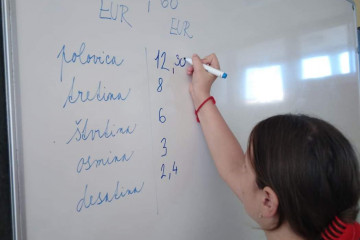 EUR
EUR
polovica 12,50
tretina 8
štvrtina 6
osmina 3
desatina 2,4